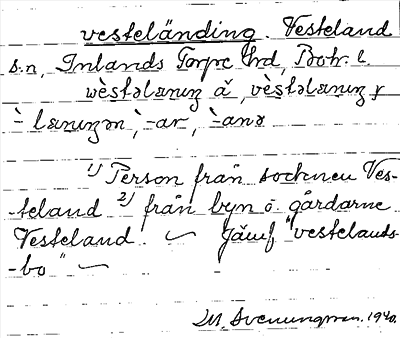 vesteländing. Vesteland
s.n, Inlands Torpe hrd, Boh. l.
wèstəlænıŋ ă, vèstəlænıŋ
-lænıŋən, -ar, -anə
1) Person från socknen Ves-
-teland 2) från byn o. gårdarne
Vesteland. ~ Jämf "vestelands-
-bo" ~
M. Svenungsson. 1940.